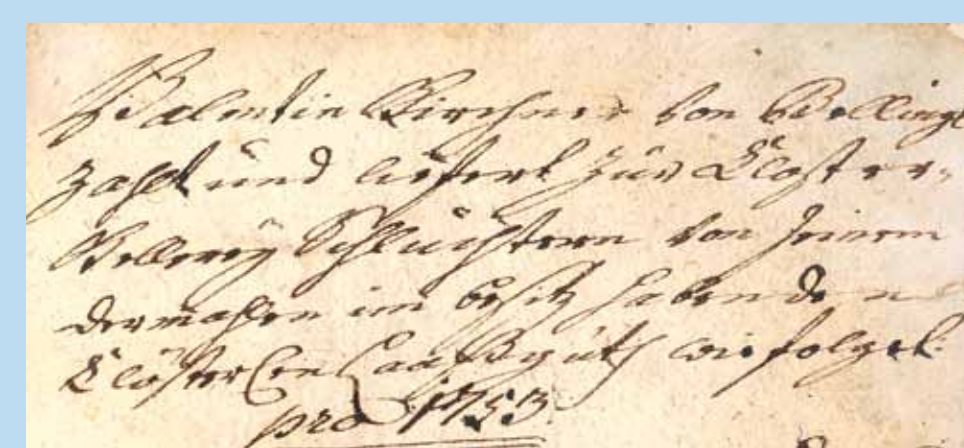 Valentin Kirchner von Wellings
zahlt und liefert zur Closter-
Kellerey Schlüchtern von seinem
dermahlen im besitz habenden
Clösterlen Laaßguth wie folget:
pro 1753.